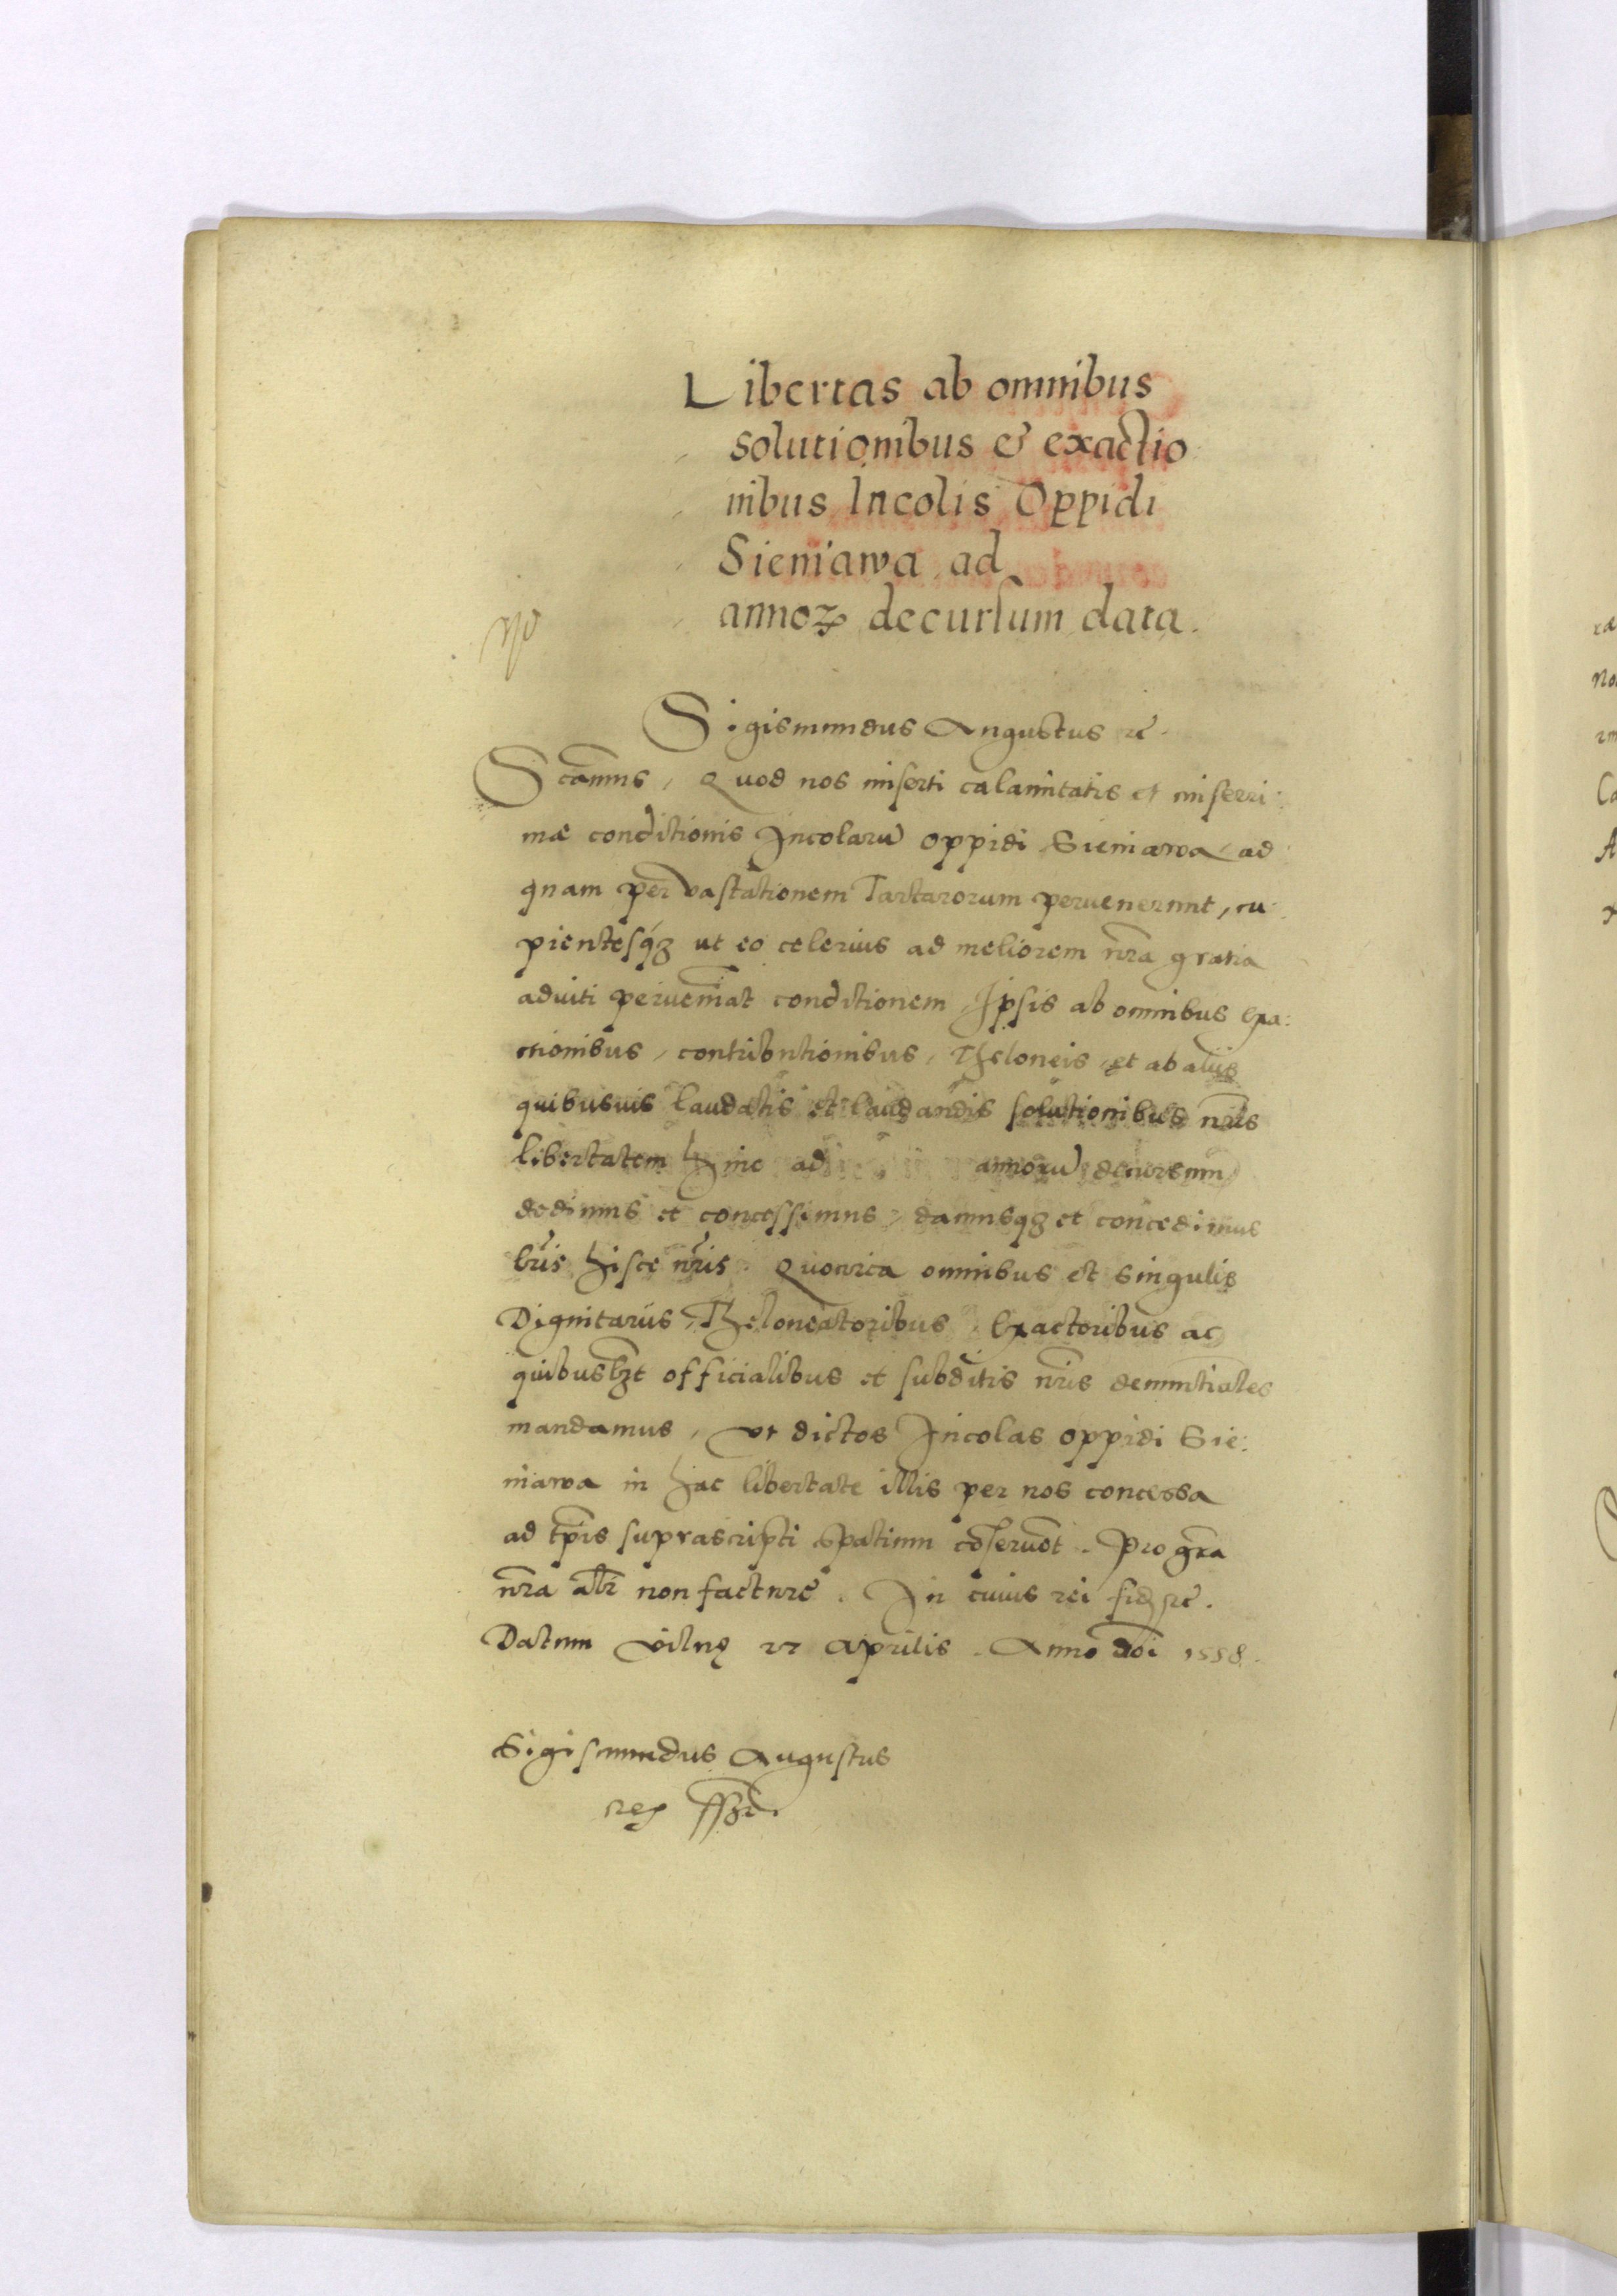 Libertas ab omnibus
solutionibus & exactio
nibus Incolis Oppidi
Sieniawa ad
annoꝝ decursum data.
Sigismundus Augustus ꝛc.
Scimus, Quod nos miserti calamitatis et miserri:
mæ conditionis Incolarū oppidi Sieniawa ad
quam per vastationem Tartarorum peruenerunt, cu:
pientesqꝫ ut eo celerius ad meliorem nr̄a gratia
adiuti perueniāt conditionem, Ipsis ab omnibus exa:
ctionibus, contributionibus, Theloneis, et ab alijs
quibusuis laudatis et laudandis solutionibus nr̄is
libertatem hinc ad annorū decursum
dedimus et concessimus, damusqꝫ et concedimus
lr̄is hisce nr̄is. Quocirca omnibus et singulis
Dignitarijs, Theloneatoribus, Exactoribus ac
quibuslꝫt officialibus et subditis nr̄is denunciātes
mandamus, vt dictos Incolas oppidi Sie:
niawa in hac libertate illis per nos concessa
ad tp̄is suprascripti spatium cōseruēt. Pro gr̄a
nr̄a alr̄ non facture. In cuius rei fidē ꝛc.
Datum Vilnę 27 Aprilis. Anno dn̄i 1558.
Sigismundus Augustus
rex sszt.